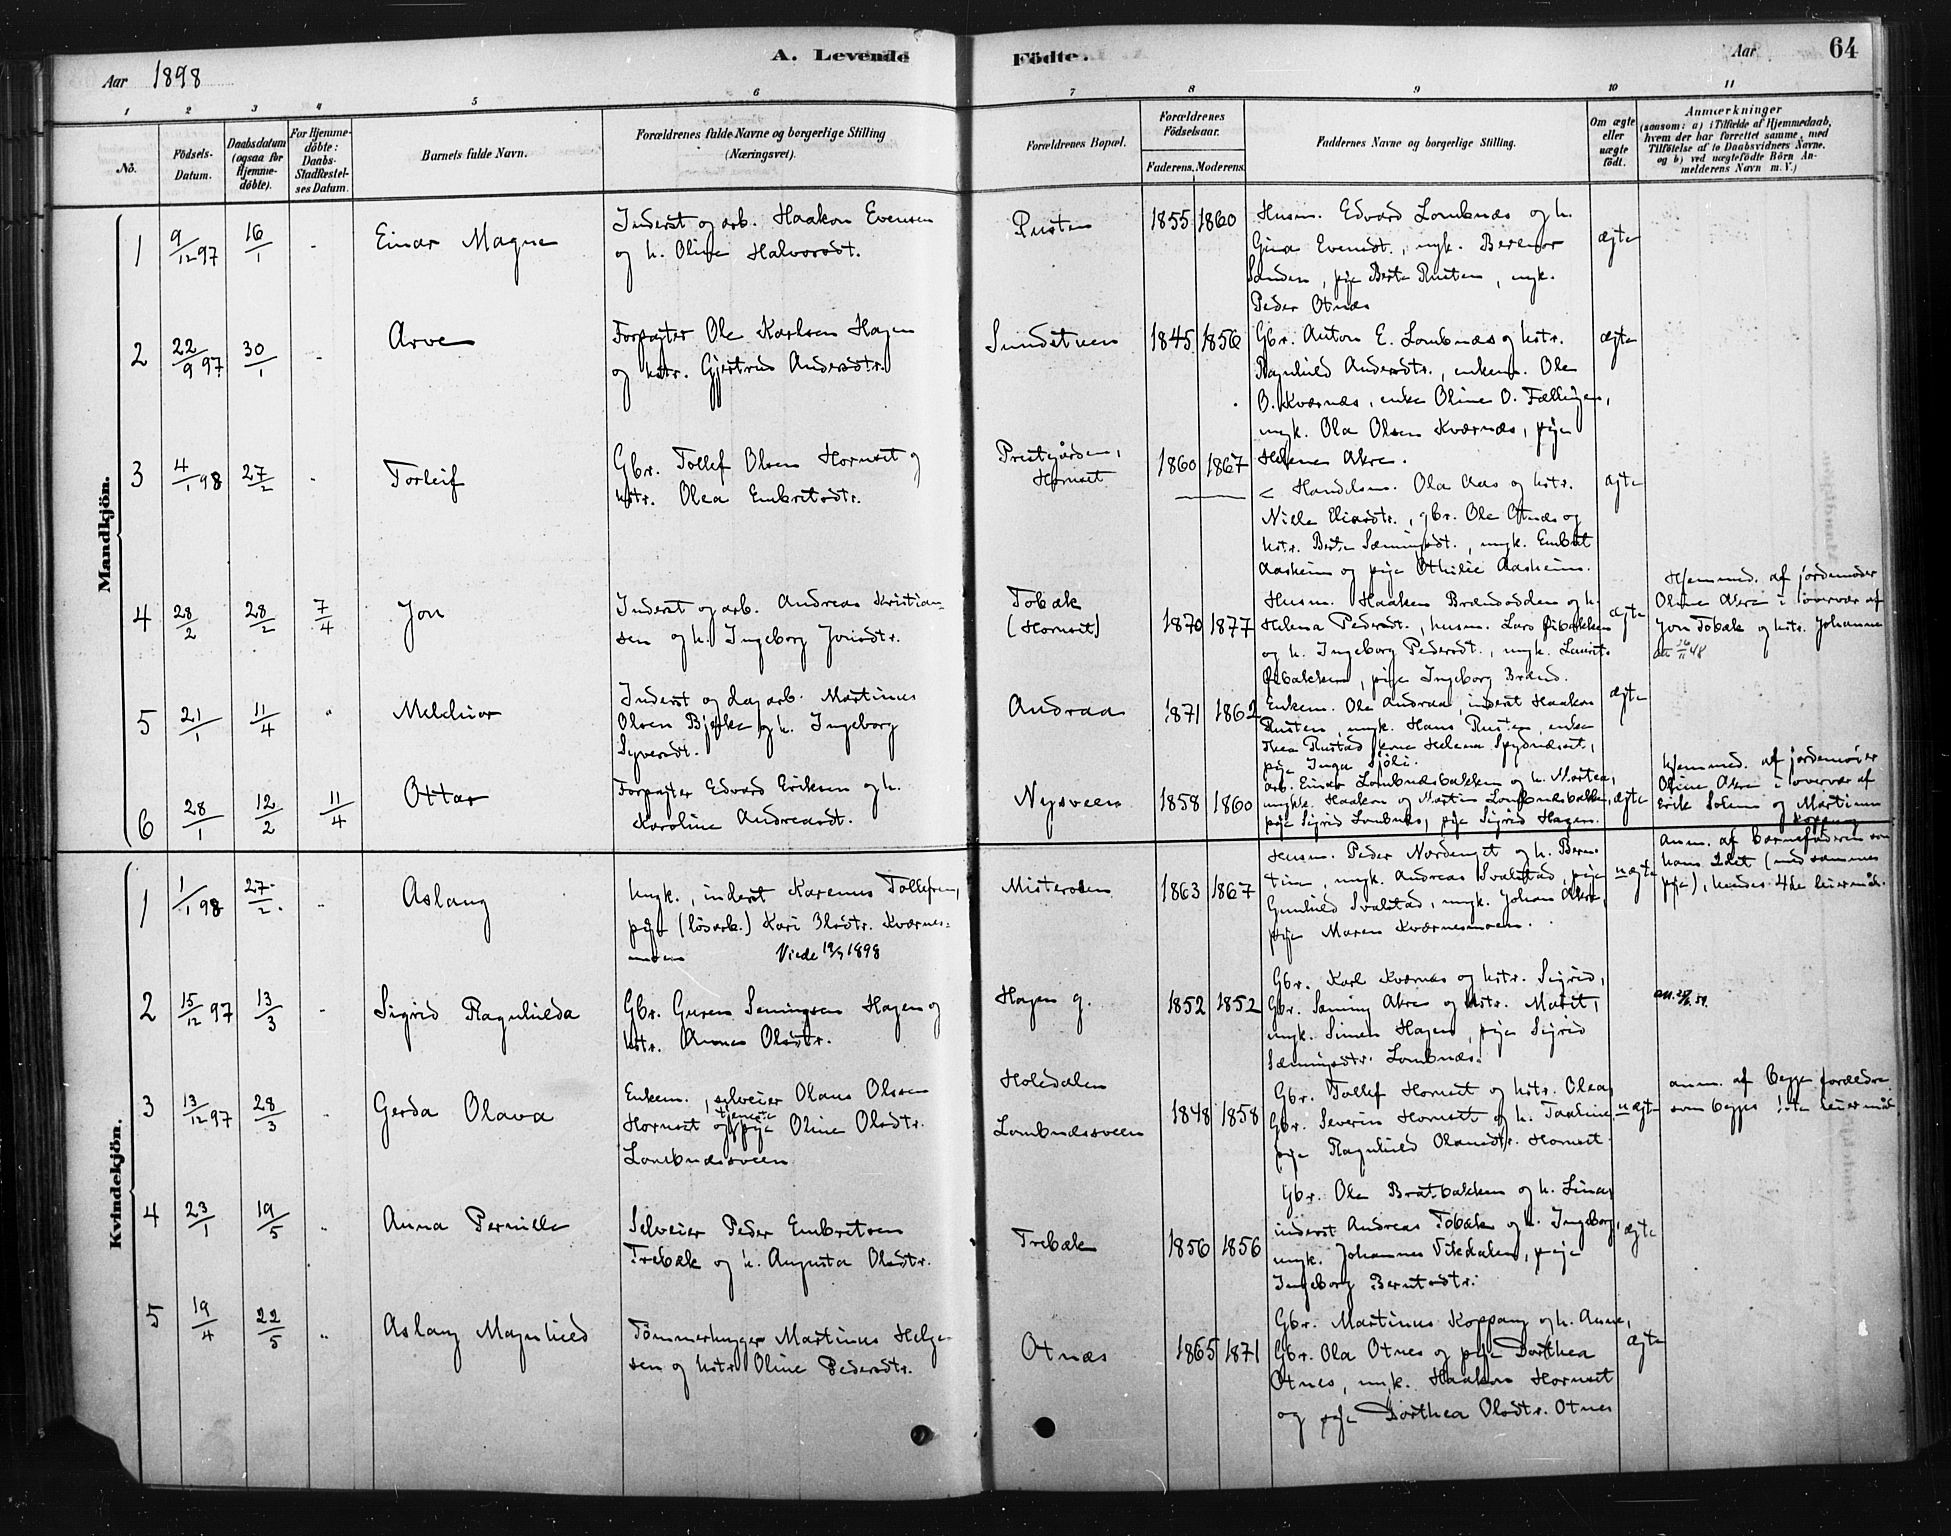 Aar 1898
A. Levende Födte.
Aar
64
1 2 3 4 5 6 7 8 9 10 11
No.
Födsels-Datum.
Daabsdatum (ogsaa for Hjemmedöbte).
For Hjemmedöbte: Daabs-Stadfæstelses Datum.
Barnets fulde Navn.
Forældrenes fulde Navne og borgerlige Stilling (Næringsvei).
Forældrenes Bopæl.
Forældrenes Födselsaar.
Faderens. Moderens.
Faddernes Navne og borgerlige Stilling.
Om ægte eller uægte födt.
Anmærkninger
(saasom: a) i Tilfælde af Hjemmedaab, hvem der har forrettet samme, med Tilföielse af to Daabsvidners Navne. og b) ved uægtefödte Börn Anmelderens Navn m. V.)
Mandkjön.
1 9/12 97 16/1 - Einar Magne
Inderst og arb. Haakon Evensen
og h. Oline Halvorsdt.
1855 1860
Husm. Edvard Lombnæs og h.
Gina Evensdt., ungk.
pige Berte Rusten, ungk.
Peder Otnæs
ægte
2 22/9 97 30/1 - Arve
Forpagter Ole Karlsen Hagen
og kstr. Gjertrud Andersdtr.
Sundstuen
1845 1856
Gbr. Anton E. Lombnæs og kstr.
Ragnhild Andersdtr., enkem. Ole
O. Kværnæs, enke Oline O. Fællingen,
ungk. Ola Olsen Kværnæs, pige
Helene Akre.
ægte
3 4/1 98 27/2 - Torleif
Gbr. Tollef Olsen Hornset og
kstr. Olea Embretsdtr.
Prestgården,
Hornset
1860 1867
Handelsm. Ola Aas og kstr.
Nille Eliasdtr., gbr. Ole Otnæs og
kstr. Berte Sæmingsdt., ungk. Embret
Aasheim og pige Othilie Aasheim.
ægte
4 28/2 28/2 7/4 Jon
Inderst og arb. Andreas Kristian-
sen og h. Ingeborg Jonsdtr.
Tobæk
(Hornset)
1870 1877
Husm. Haaken Brændodden og h.
Helena Pedersdt., husm. Lars
og h. Ingeborg Pedersdt., ungk. Laurits
pige Ingeborg Brænd.
ægte
Hjemmed. af jordemoder
Oline Akre i overvær af
Jon Tobæk og kstr. Johanne
5 21/1 11/4 " Melchior
Inderst og dagarb. Martinus
Olsen Bjerke og h. Ingeborg
Syversdt.
Andraa
1871 1862
Enkem. Ole Andraa, inderst Haakon
Rusten, ungk. Hans Rusten, enke
Thea Rustad, kone Helena
pige Inga Sjöli.
ægte
6 28/1 12/2 11/4 Ottar
Forpagter Edvard Eriksen og h.
Karoline Andreasdt.
Nysveen
1858 1860
arb. Einar Lombnæsbakken og h. Martea,
ungk. Haakon og Martin Lombnæsbakken,
pige Sigrid Lombnæs, pige Sigrid Hagen.
ægte
hjemmed. af jordemoder
Oline Akre i overvær af
Erik Solem og Martinus
Koppang
Kvindekjön.
1 1/1 98 27/2. " Aslaug
Ungk., inderst Karenus Tollefsen,
pige (lösarb.) Kari Olsdtr. Kværnes-
moen Viede 19/5 1898
Misteroden
1863 1867
Husm. Peder Nordenget og h. Bern-
tine, ungk. Andreas Svalstad, pige
Gunhild Svalstad, ungk. Johan Akre,
pige Maren Kværnesmoen.
uægte
anm. af barnefaderen som
hans 2det (med samme
pige), hendes 4de leiermål.
2 15/12 97 13/3 - Sigrid Ragnhilda
Gbr. Guren Semingsen Hagen og
kstr. Anne Olsdtr.
Hagen g.
1852 1852
Gbr. Karl Kværnæs og kstr. Sigrid,
Gbr. Sæming Akre og kstr. Marit,
ungk. Simen Hagen, pige Sigrid
Sæmingsdtr. Lombnæs.
3 13/12 97 28/3 Gerda Olava
Enkem., selveier Olaus Olssen
Hornset og tjeneste pige Oline Olsdtr.
Lombnæsveen
Holedalen
Lombnæsveen
1848 1858
Gbr. Tollef Hornset og kstr. Olea,
Gbr. Severin Hornset og h. Tauline
pige Ragnhild Olausdtr. Hornset.
uægte
anm. af begge forældre
som begges 1ste leiermål
4 23/1 19/5 " Anna Pernille
Selveier Peder Embretsen
Trebæk og h. Augusta Olsdtr.
Trebæk
1856 1856
Gbr. Ole Bratbakken og h. Lina,
inderst Andreas Tobæk og h. Ingeborg,
ungk. Johannes Vikdalen, pige
Ingeborg Berntsdtr.
ægte
5 19/4 22/5 " Aslaug Magnhild
Tömmerhugger Martinus Helge-
sen og kstr. Oline Pedersdtr.
Otnæs
1865 1871
Gbr. Martinus Koppang og h. Anne,
Gbr. Ola Otnes og pige Dorthea
Otnes, ungk. Haakon Hornset
og pige Dorthea Olsdtr. Otnes
ægte